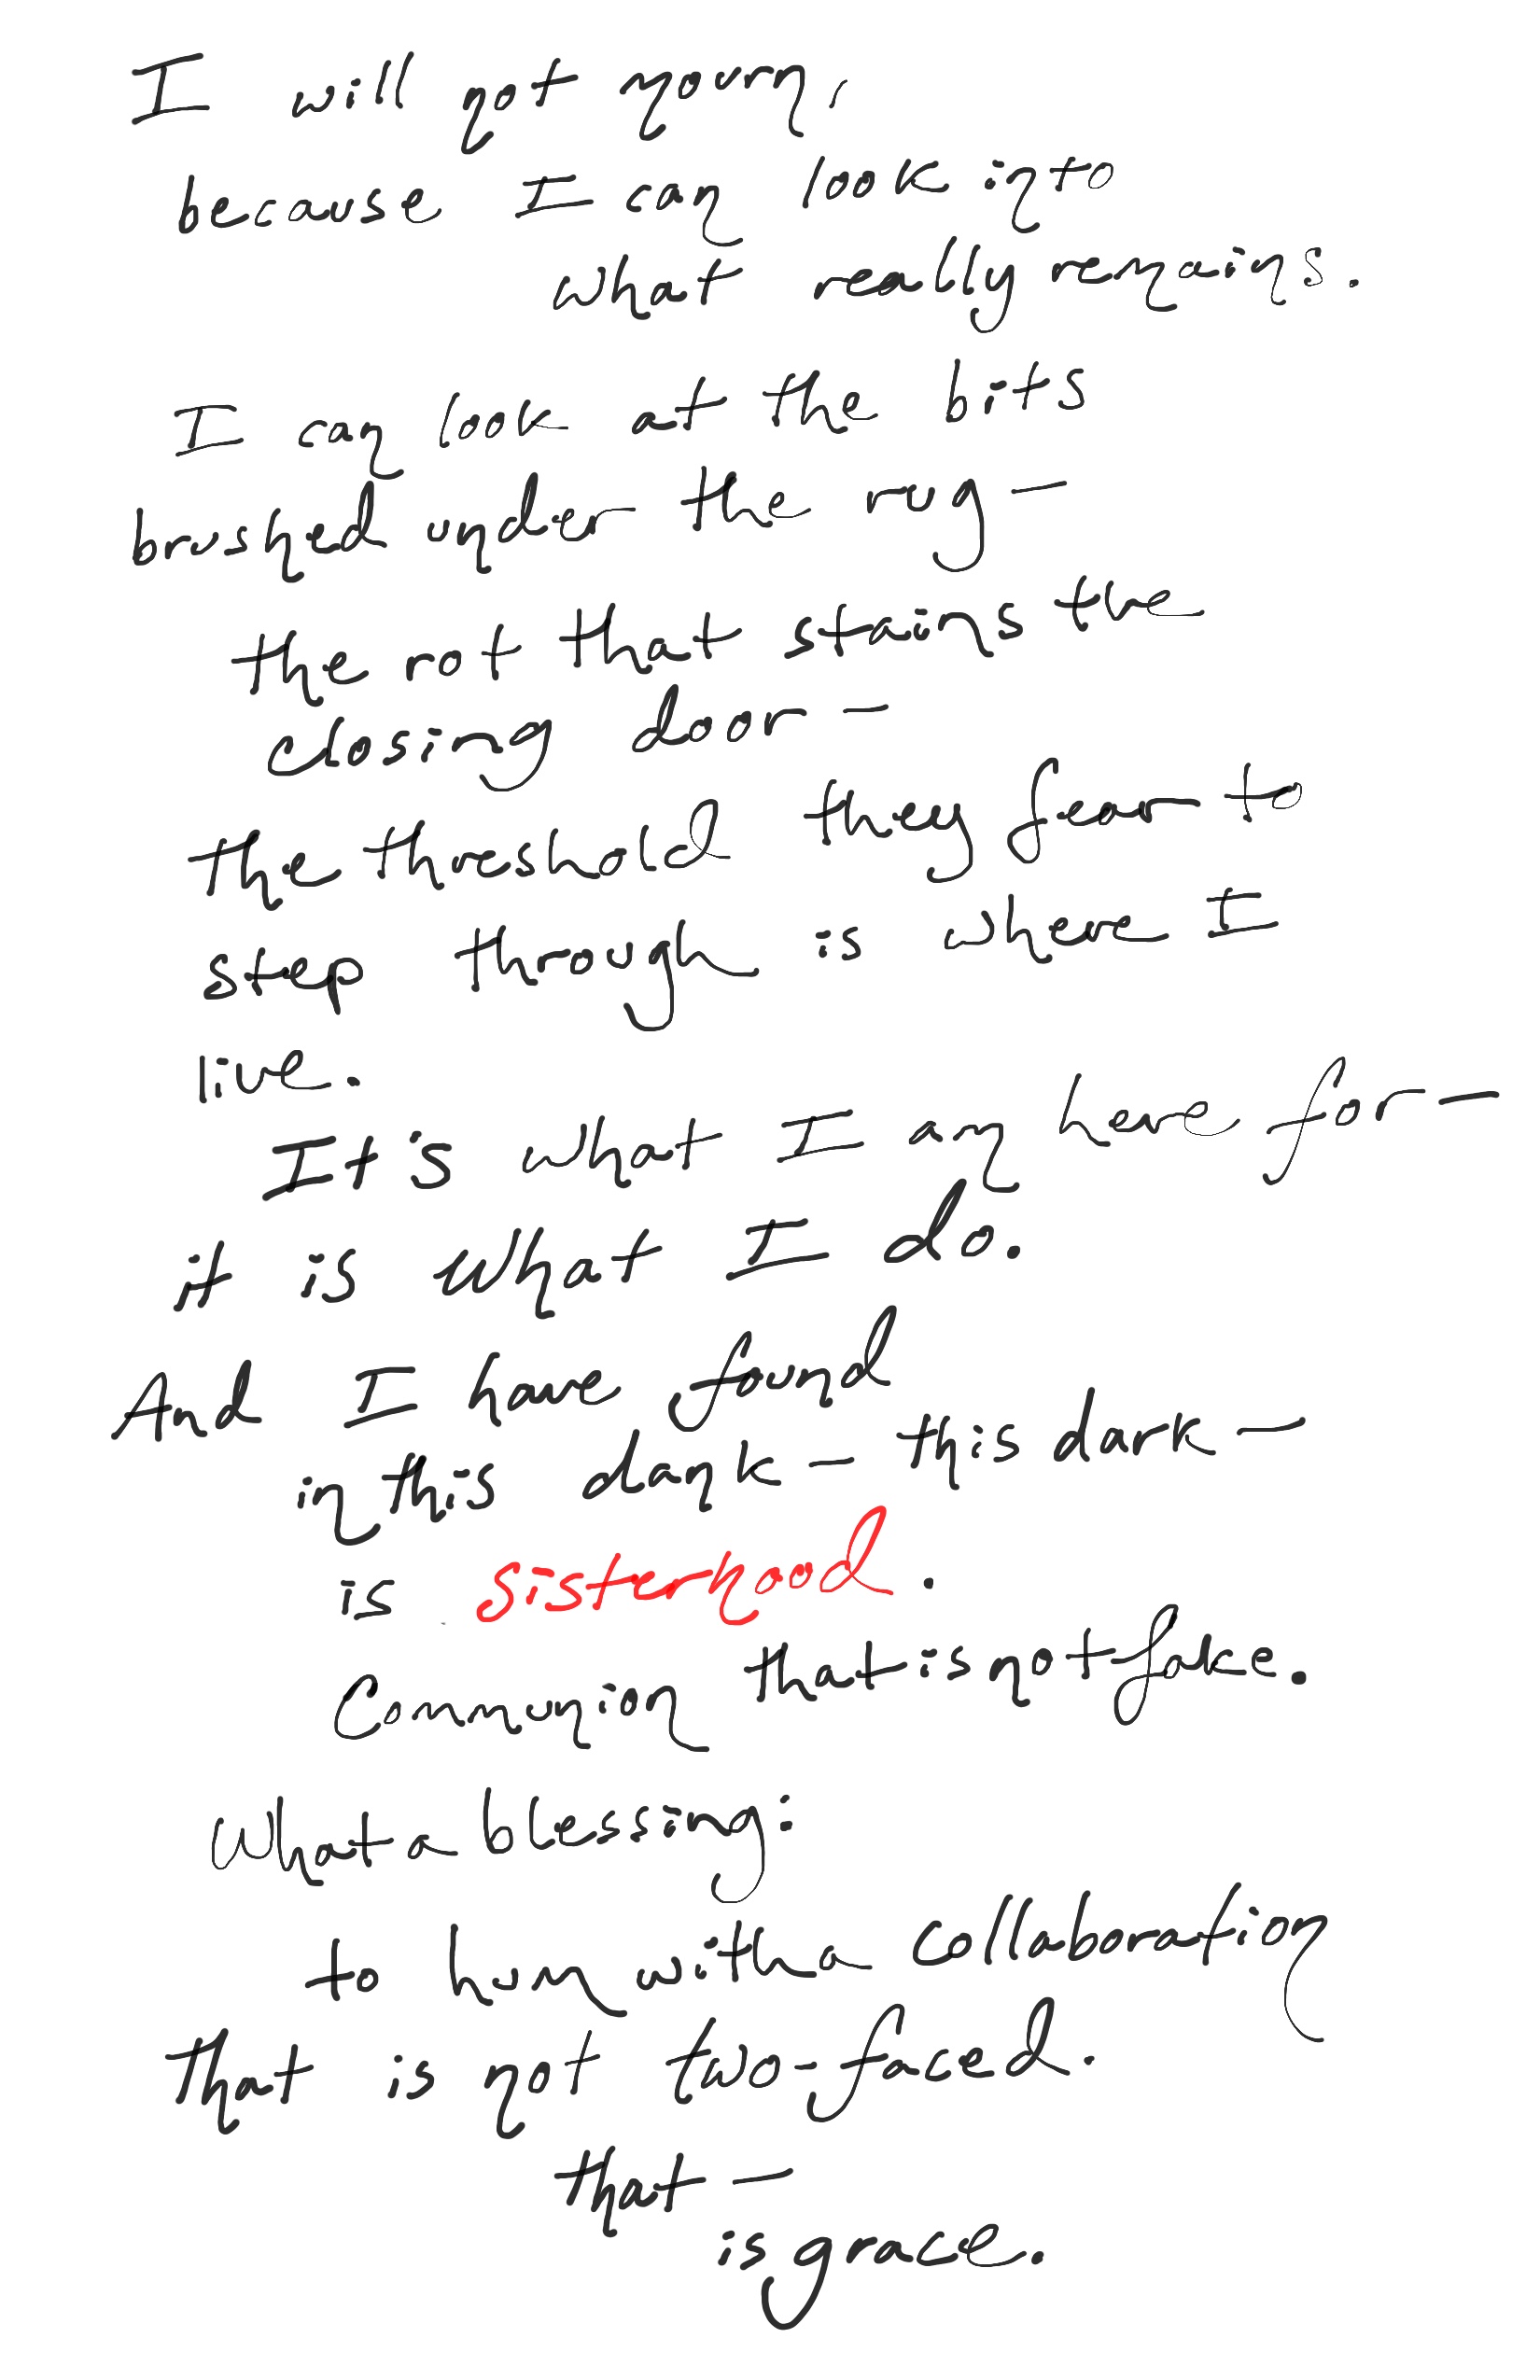 I will not mourn,
because I can look into
what really remains.
I can look at the bits
brushed under the rug—
the rot that stains the
closing door—
the threshold they fear to
step through is where I
live.
It's what I am here for—
it is what I do.
And I have found
in this dank— this dark—
is sisterhood.
Communion that is not fake.
What a blessing:
to hum with a collaboration
that is not two-faced.
that—
is grace.